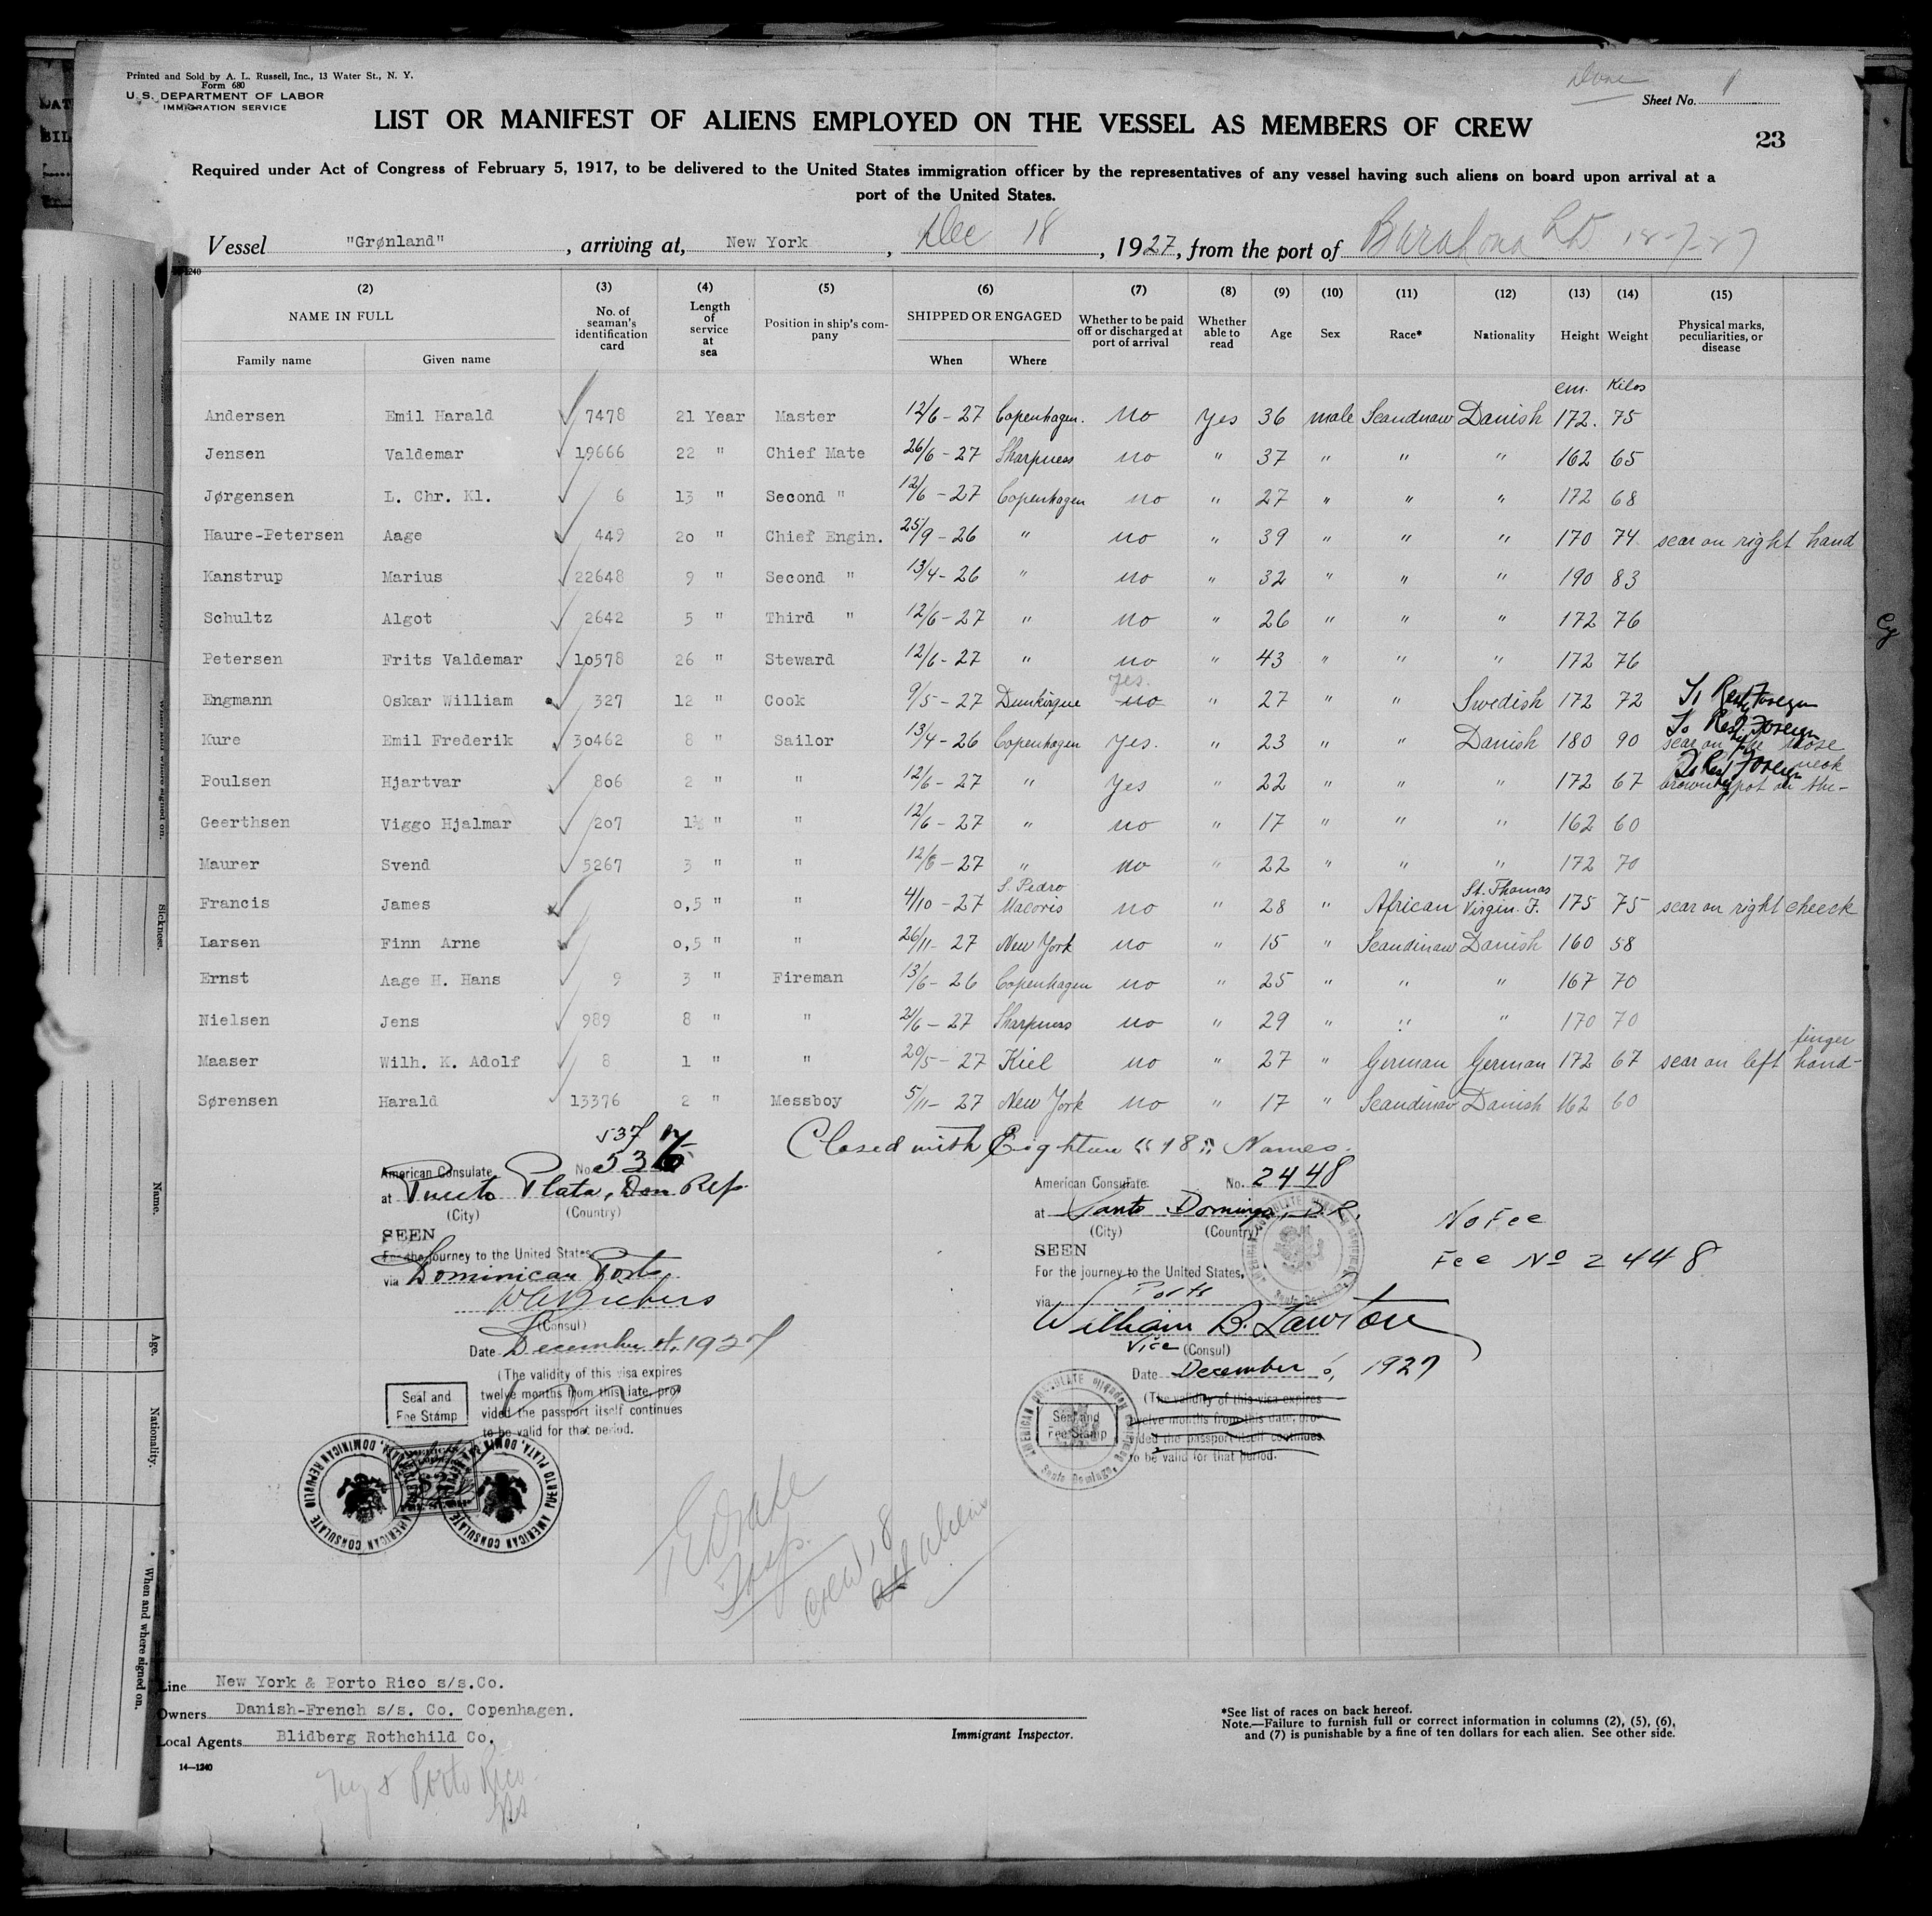 Printed and Sold by A. L. Russell, Inc., 13 Water St., N. Y.
Form 680
U. S. DEPARTMENT OF LABOR
IMMIGRATION SERVICE
Sheet No. 1
LIST OR MANIFEST OF ALIENS EMPLOYED ON THE VESSEL AS MEMBERS OF CREW
23
Required under Act of Congress of February 5, 1917, to be delivered to the United States immigration officer by the representatives of any vessel having such aliens on board upon arrival at a
port of the United States.
Vessel "Grønland", arriving at, New York, Dec 18, 1927, from the port of Barahona
(2) (3) (4) (5) (6) (7) (8) (9) (10) (11) (12) (13) (14) (15)
NAME IN FULL
Family name Given name
No. of seaman's identification card
Length of service at sea
Position in ship's company
SHIPPED OR ENGAGED
When Where
Whether to be paid off or discharged at port of arrival
Whether able to read
Age Sex Race* Nationality Height Weight
Physical marks, peculiarities, or disease
cm. Kilos
Andersen Emil Harald 7478 21 Year Master 12/6-27 Copenhagen. no Yes 36 male Scandinaw Danish 172. 75
Jensen Valdemar 19666 22 " Chief Mate 26/6-27 Sharpness no " 37 " " " 162 65
Jørgensen L. Chr. Kl. 6 13 " Second " 12/6-27 Copenhagen no " 27 " " " 172 68
Haure-Petersen Aage 449 20 " Chief Engin. 25/9-26 " no " 39 " " " 170 74 scar on right hand
Kanstrup Marius 22648 9 " Second " 13/4-26 " no " 32 " " " 190 83
Schultz Algot 2642 5 " Third " 12/6-27 " no " 26 " " " 172 76
Petersen Frits Valdemar 10578 26 " Steward 12/6-27 " no " 43 " " " 172 76
yes.
Engmann Oskar William 327 12 " Cook 9/5-27 Dunkirque no " 27 " " Swedish 172 72 To Resh. Foreign
To Resh. Foreign
Kure Emil Frederik 30462 8 " Sailor 13/4-26 Copenhagen Yes. " 23 " " Danish 180 90 scar on the nose
To Resh Foreign neck
Poulsen Hjartvar 806 2 " " 12/6-27 " Yes " 22 " " " 172 67 brown spot on the-
Geerthsen Viggo Hjalmar 207 1½ " " 12/6-27 " no " 17 " " " 162 60
Maurer Svend 5267 3 " " 12/6-27 " no " 22 " " " 172 70
S. Pedro St. Thomas
Francis James 0,5 " " 4/10-27 Macoris no " 28 " African Virgin. I. 175 75 scar on right cheeck
Larsen Finn Arne 0,5 " " 26/11-27 New York no " 15 " Scandinaw Danish 160 58
Ernst Aage H. Hans 9 3 " Fireman 13/6-26 Copenhagen no " 25 " " " 167 70
Nielsen Jens 989 8 " " 21/6-27 Sharpness no " 29 " " " 170 70
finger
Maaser Wilh. K. Adolf 8 1 " " 20/5-27 Kiel no " 27 " German German 172 67 scar on left hand-
Sørensen Harald 13376 2 " Messboy 5/11-27 New York no " 17 " Scandinaw Danish 162 60
Closed with Eighteen "18" Names.
537
American Consulate No. 536
at Puerto Plata, Dom Rep.
(City) (Country)
SEEN
For the journey to the United States
via Dominican Ports
(Consul)
Date December 4, 1927
(The validity of this visa expires
twelve months from this date, pro-
vided the passport itself continues
to be valid for that period.
Seal and
Fee Stamp
AMERICAN CONSULATE PUERTO PLATA, DOMINICAN REPUBLIC
American Consulate No. 2448
at Santo Domingo, D.R.
(City) (Country)
SEEN
For the journey to the United States,
via Ports
William B. Lawton
Vice (Consul)
Date December 6, 1927
(The validity of this visa expires
twelve months from this date, pro-
vided the passport itself continues
to be valid for that period.
Seal and
Fee Stamp
No Fee
Fee No 2448
Insp.
Crew 18
all aliens
Line New York & Porto Rico s/s.Co.
Owners Danish-French s/s. Co. Copenhagen.
Local Agents Blidberg Rothchild Co.
14—1240
Ny & Porto Rico
Immigrant Inspector.
*See list of races on back hereof.
Note.—Failure to furnish full or correct information in columns (2), (5), (6),
and (7) is punishable by a fine of ten dollars for each alien. See other side.
Sickness.
Name.
Age.
Nationality.
When and where signed on.